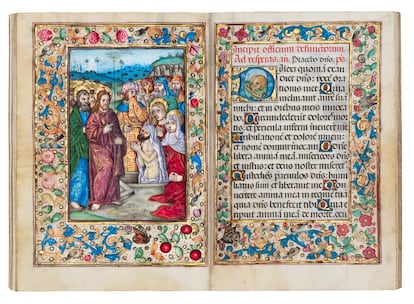 Incipit officium defunctorum.
Ad vesperas. añ. Placebo dño. ps.
Dilexi quoniã exau
diet dñs: vocẽ ora
tionis mee. Quia
inclinavit aurẽ suã
michi: et in diebus meis invoca
bo. Circundederũt me dolores mor
tis: et pericula inferni invenerũt me
Tribulationẽ et dolorẽ inveni:
et nomen domini invocavi. O dñe
libera animã meã misericors dñs
et iustus: et deus noster miseretur
Custodiens parvulos dñs: humi
liatus sum et liberavit me. Conver
tere anima mea in requiẽ tuã
quia dñs benefecit tibi. Quia eri
puit animã meã de morte. ocu